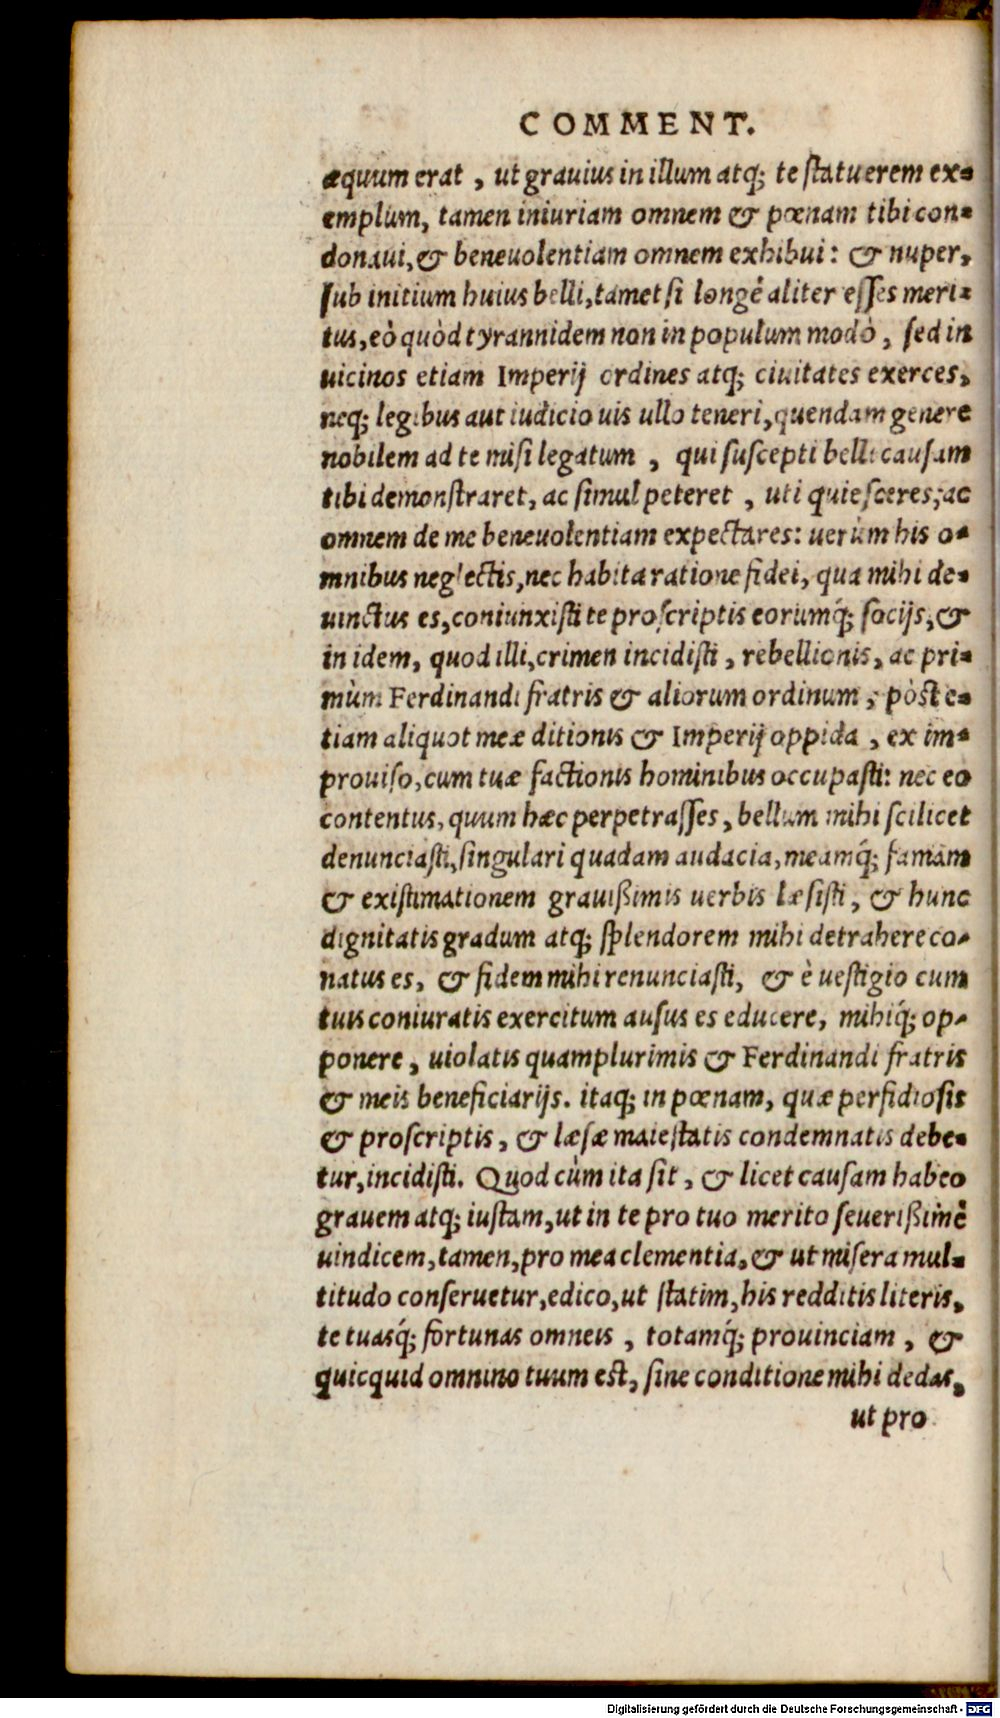 COMMENT.
æquum erat, ut grauius in illum atq; te ſtatuerem ex-
emplum, tamen iniuriam omnem & pœnam tibi con-
donaui, & beneuolentiam omnem exhibui: & nuper,
ſub initium huius belli, tametſi longè aliter eſſes meri-
tus, eò quòd tyrannidem non in populum modò, ſed in
uicinos etiam Imperij ordines atq; ciuitates exerces,
neq; legibus aut iudicio uis ullo teneri, quendam genere
nobilem ad te miſi legatum, qui ſuſcepti belli cauſam
tibi demonſtraret, ac ſimul peteret, uti quieſceres, ac
omnem de me beneuolentiam expectares: uerùm his o-
mnibus neglectis, nec habita ratione fidei, qua mihi de-
uinctus es, coniunxiſti te proſcriptis eorumq́; ſocijs, &
in idem, quod illi, crimen incidiſti, rebellionis, ac pri-
mùm Ferdinandi fratris & aliorum ordinum, pòſt e-
tiam aliquot meæ ditionis & Imperij oppida, ex im-
prouiſo, cum tuæ factionis hominibus occupaſti: nec eo
contentus, quum hæc perpetraſſes, bellum mihi ſcilicet
denunciaſti, ſingulari quadam audacia, meamq́; famam
& exiſtimationem grauißimis uerbis læſiſti, & hunc
dignitatis gradum atq; ſplendorem mihi detrahere co-
natus es, & fidem mihi renunciaſti, & è ueſtigio cum
tuis coniuratis exercitum auſus es educere, mihiq́; op-
ponere, uiolatis quamplurimis & Ferdinandi fratris
& meis beneficiarijs. itaq; in pœnam, quæ perfidioſis
& proſcriptis, & læſæ maieſtatis condemnatis debe-
tur, incidiſti. Quod cùm ita ſit, & licet cauſam habeo
grauem atq; iuſtam, ut in te pro tuo merito ſeuerißimè
uindicem, tamen, pro mea clementia, & ut miſera mul-
titudo conſeruetur, edico, ut ſtatim, his redditis literis,
te tuasq́; fortunas omneis, totamq́; prouinciam, &
quicquid omnino tuum eſt, ſine conditione mihi dedas,
ut pro
Digitalisierung gefördert durch die Deutsche Forschungsgemeinschaft - DFG